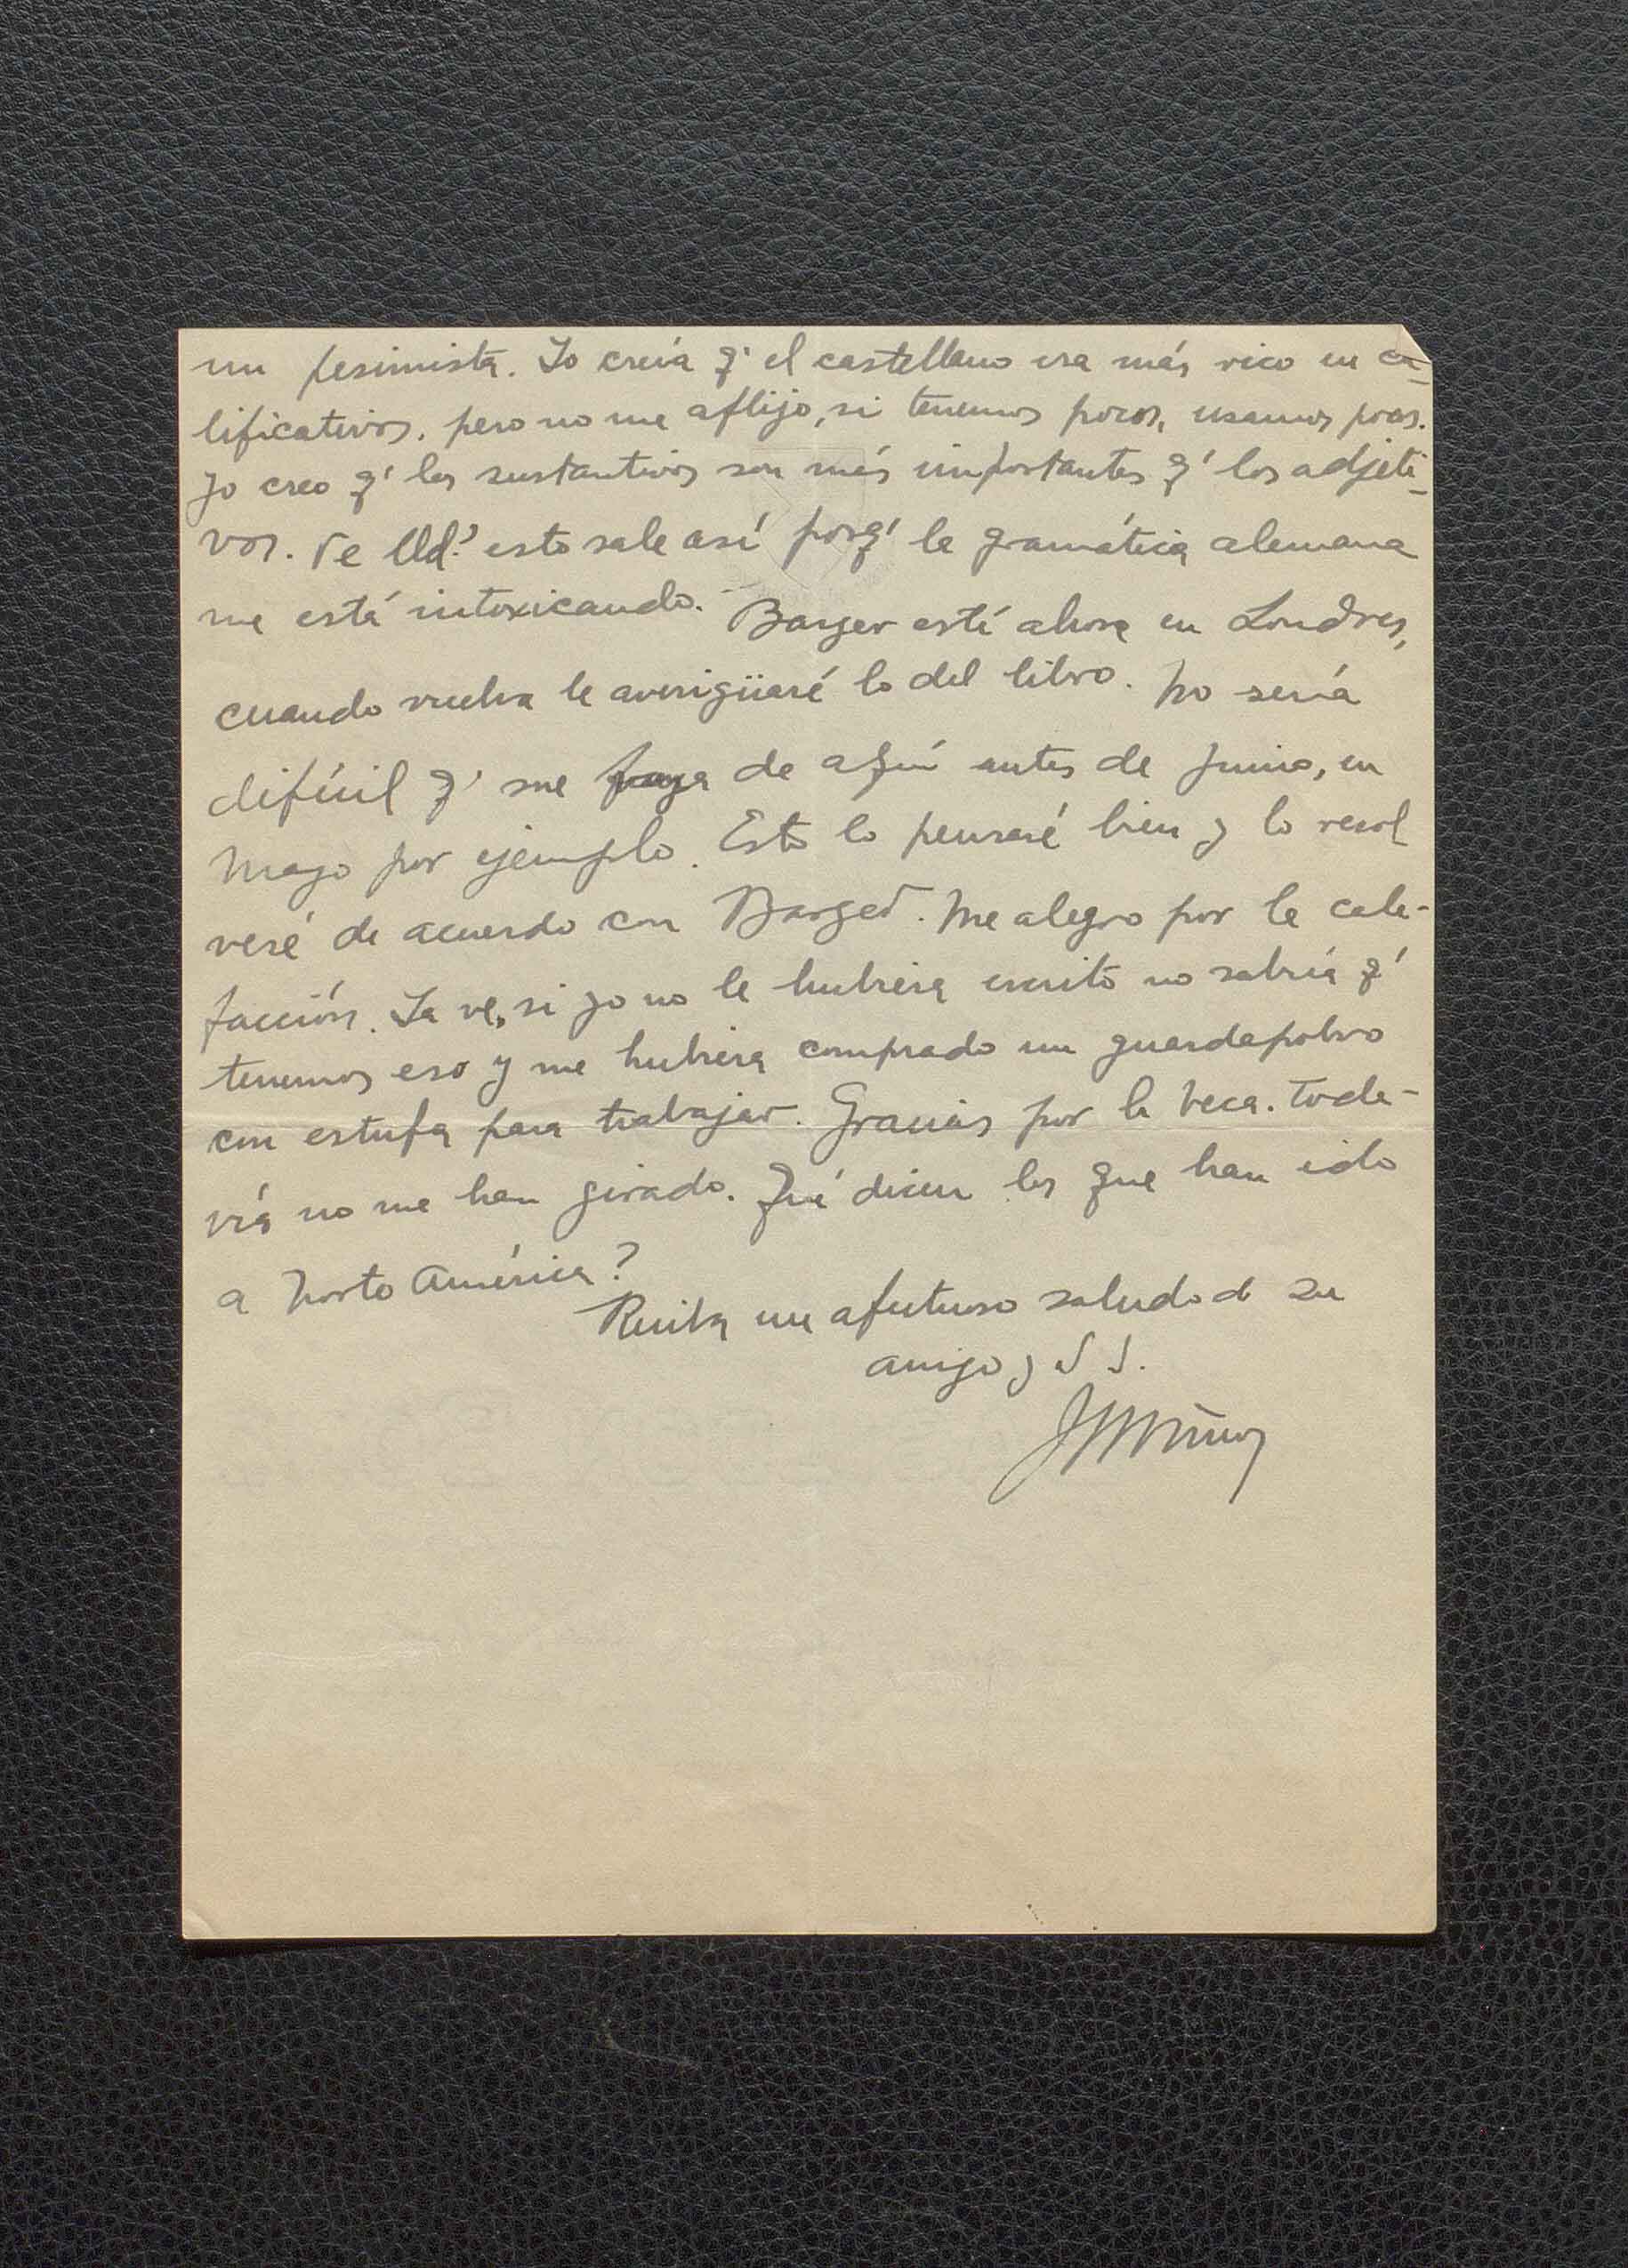 un pesimista. Yo creía q' el castellano era más rico en ca-
lificativos, pero no me aflijo, si tenemos pocos, usamos pocos.
Yo creo q' los sustantivos son más importantes q' los adjeti-
vos. Ve Ud.? esto sale así porq' la gramática alemana
me está intoxicando. — Barger está ahora en Londres,
cuando vuelva le averigüaré lo del libro. No sería
difícil q' me vaya de aquí antes de Junio, en
Mayo por ejemplo. Esto lo pensaré bien y lo resol
veré de acuerdo con Barger. Me alegro por la cale-
facción. Ya ve, si yo no le hubiera escrito no sabría q'
tenemos eso y me hubiera comprado un guardapolvo
con estufa para trabajar. Gracias por la beca. Toda-
vía no me han girado. Qué dicen los que han ido
a Norte América?
Reciba un afectuoso saludo d su
amigo y S S.